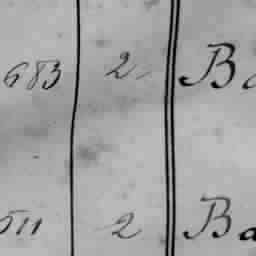 683 2 B
511 2 Ba